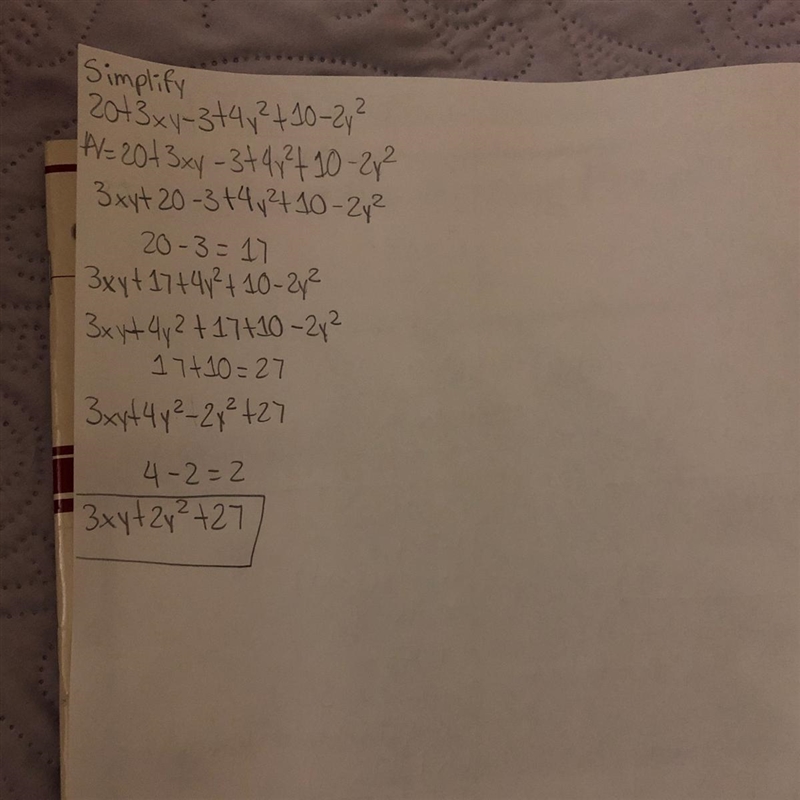 Simplify
20+3xy-3+4y²+10-2y²
=20+3xy-3+4y²+10-2y²
3xy+20-3+4y²+10-2y²
20-3=17
3xy+17+4y²+10-2y²
3xy+4y²+17+10-2y²
17+10=27
3xy+4y²-2y²+27
4-2=2
3xy+2y²+27